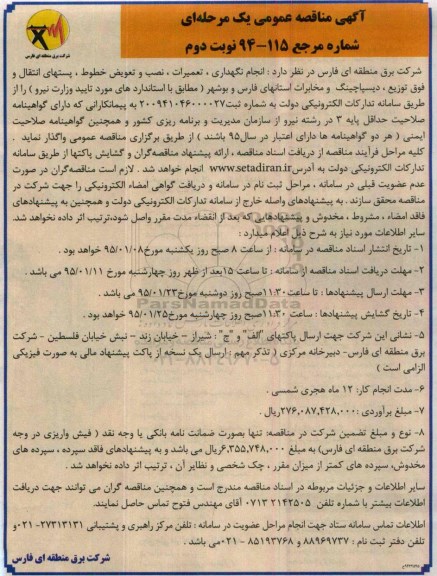 آگهی مناقصه عمومی یک مرحله‌ای
شماره مرجع ۱۱۵-۹۴ نوبت دوم
شرکت برق منطقه ای فارس
شرکت برق منطقه ای فارس در نظر دارد : انجام نگهداری ، تعمیرات ، نصب و تعویض خطوط ، پستهای انتقال و
فوق توزیع ، دیسپاچینگ و مخابرات استانهای فارس و بوشهر ( مطابق با استاندارد های مورد تایید وزارت نیرو ) را از
طریق سامانه تدارکات الکترونیکی دولت به شماره ثبت۲۰۰۹۴۱۰۴۶۰۰۰۰۲۷ به پیمانکارانی که دارای گواهینامه
صلاحیت حداقل پایه ۳ در رشته نیرو از سازمان مدیریت و برنامه ریزی کشور و همچنین گواهینامه صلاحیت
ایمنی ( هر دو گواهینامه ها دارای اعتبار در سال۹۵ باشند ) از طریق برگزاری مناقصه عمومی واگذار نماید .
کلیه مراحل فرآیند مناقصه از دریافت اسناد مناقصه ، ارائه پیشنهاد مناقصه‌گران و گشایش پاکتها از طریق سامانه
تدارکات الکترونیکی دولت به آدرس www.setadiran.ir انجام خواهد شد . لازم است مناقصه‌گران در صورت
عدم عضویت قبلی در سامانه ، مراحل ثبت نام در سامانه و دریافت گواهی امضاء الکترونیکی را جهت شرکت در
مناقصه محقق سازند . به پیشنهادهای واصله خارج از سامانه تدارکات الکترونیکی دولت و همچنین به پیشنهادهای
فاقد امضاء ، مشروط ، مخدوش و پیشنهادهایی که بعد از انقضاء مدت مقرر واصل شود،ترتیب اثر داده نخواهد شد.
سایر اطلاعات مورد نیاز به شرح ذیل اعلام میدارد :
۱- تاریخ انتشار اسناد مناقصه در سامانه : از ساعت ۸ صبح روز یکشنبه مورخ۹۵/۰۱/۰۸ خواهد بود .
۲- مهلت دریافت اسناد مناقصه از سامانه : تا ساعت ۱۵بعد از ظهر روز چهارشنبه مورخ ۹۵/۰۱/۱۱ می باشد .
۳- مهلت ارسال پیشنهادها : تا ساعت۱۱:۳۰صبح روز دوشنبه مورخ۹۵/۰۱/۲۳ می باشد .
۴- تاریخ گشایش پیشنهادها : ساعت ۱۱:۳۰صبح روز چهارشنبه مورخ۹۵/۰۱/۲۵ خواهد بود .
۵- نشانی این شرکت جهت ارسال پاکتهای "الف" و "ج" : شیراز - خیابان زند - نبش خیابان فلسطین - شرکت
برق منطقه ای فارس- دبیرخانه مرکزی ( تذکر مهم : ارسال یک نسخه از پاکت پیشنهاد مالی به صورت فیزیکی
الزامی است )
۶- مدت انجام کار: ۱۲ ماه هجری شمسی .
۷- مبلغ برآوردی :۲۷۶,۰۸۷,۴۲۸,۰۰۰ریال .
۸- نوع و مبلغ تضمین شرکت در مناقصه: تنها بصورت ضمانت نامه بانکی یا وجه نقد ( فیش واریزی در وجه
شرکت برق منطقه ای فارس) به مبلغ ۶,۳۵۵,۷۴۸,۰۰۰ریال می باشد و به پیشنهادهای فاقد سپرده ، سپرده های
مخدوش، سپرده های کمتر از میزان مقرر ، چک شخصی و نظایر آن ، ترتیب اثر داده نخواهد شد .
سایر اطلاعات و جزئیات مربوطه در اسناد مناقصه مندرج است و همچنین مناقصه گران می توانند جهت دریافت
اطلاعات بیشتر با شماره تلفن ۲۱۴۲۵۰۵ ۰۷۱۳ آقای مهندس فتوح تماس حاصل نمایند.
اطلاعات تماس سامانه ستاد جهت انجام مراحل عضویت در سامانه : تلفن مرکز راهبری و پشتیبانی ۲۷۳۱۳۱۳۱-۰۲۱ و
تلفن دفتر ثبت نام : ۸۸۹۶۹۷۳۷ و ۸۵۱۹۳۷۶۸ -۰۲۱ می باشد .
شرکت برق منطقه ای فارس
ParsNamadData